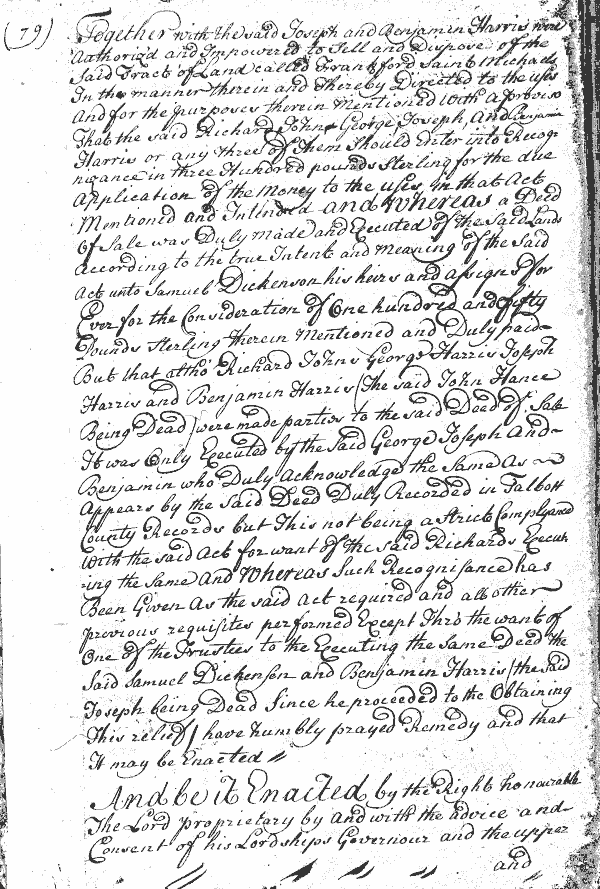 (79)
Together with the said Joseph and Benjamin Harris were
Authoriz'd and Impowered to Sell and Dispose of the
Said Tract of Land called Frankford Saint Michaels
In the manner therein and thereby Directed to the uses
And for the purposes therein Mentioned with a proviso
That the said Richard John George Joseph, And Benjamin
Harris or any three of them Should Enter into Recog-
nizance in three Hundred pounds Sterling for the due
Application of the Money to the uses in that Act
Mentioned and Intended and Whereas a Deed
Of Sale was Duly made and Executed of the Said Lands
According to the true Intent and Meaning of the Said
Act unto Samuel Dickenson his heirs and assigns for
Ever for the Consideration of One hundred and fifty
Pounds Sterling therein Mentioned and Duly paid
But that altho' Richard Johns George Harris Joseph
Harris and Benjamin Harris (The said John Hance
Being Dead) were made parties to the said Deed of Sale
It was Only Executed by the Said George Joseph And
Benjamin who Duly Acknowledge the Same As
Appears by the Said Deed Duly Recorded in Talbott
County Records but This not being a Strict Complyance
With the said Act for want of the said Richards Execut
ing the Same And Whereas Such Recognisance has
Been Given As the said Act required and all other
previous requisites performed Except Thro the want of
One of the Trustees to the Executing the Same Deed the
Said Samuel Dickenson and Benjamin Harris (the said
Joseph being Dead Since he proceeded to the Obtaining
This relief) have humbly prayed Remedy and that
It may be Enacted
And be it Enacted by the Right honourable
The Lord proprietary by and with the advice and
Consent of his Lordships Governour and the upper
and